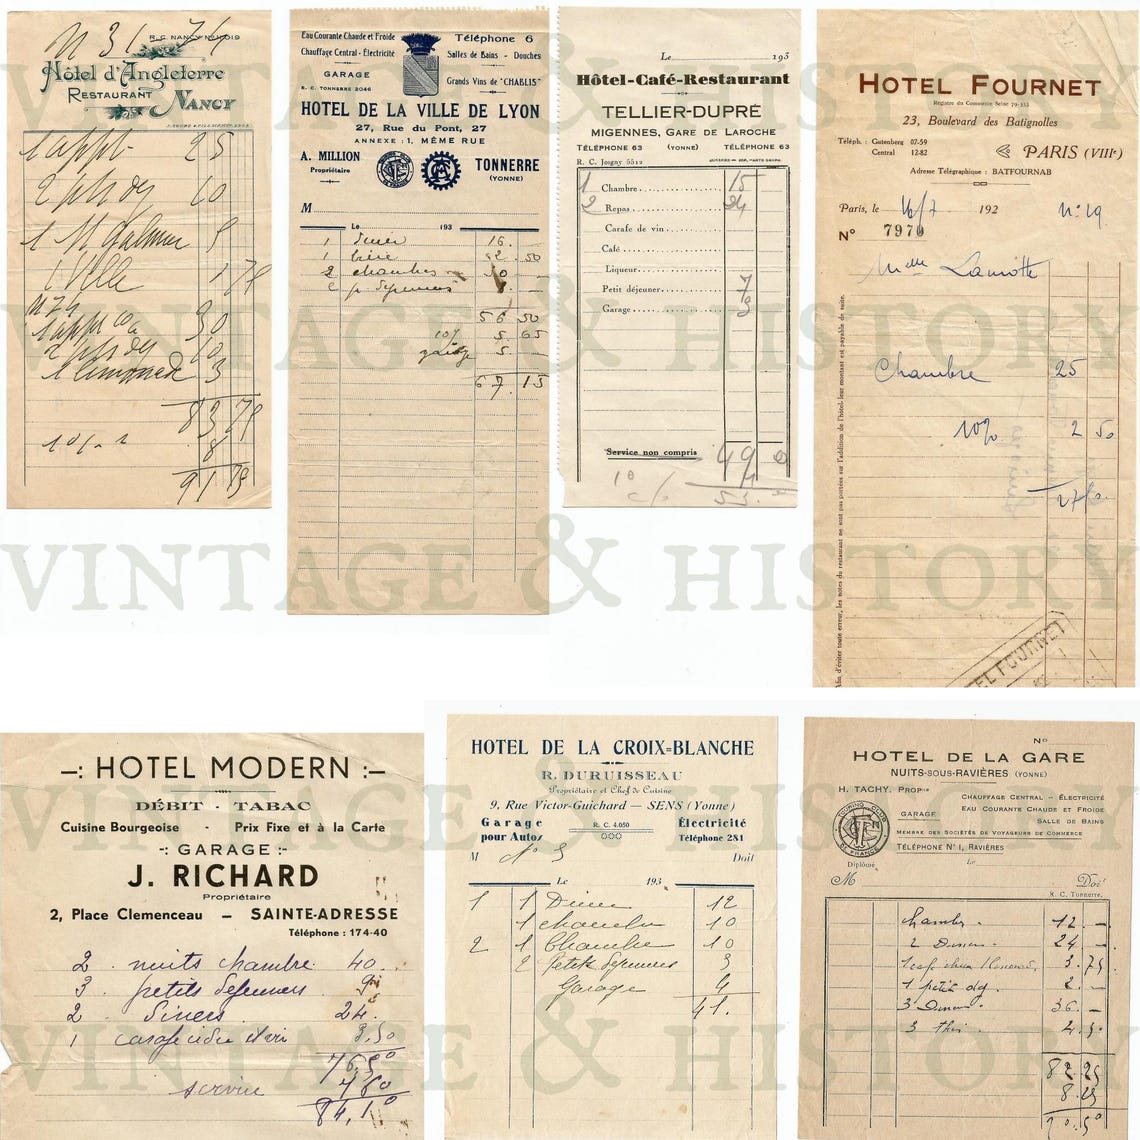 N 31/71
R.C. NANCY
Hôtel d'Angleterre
RESTAURANT NANCY
1 appt 25
2 10
1 5
1 1 75
30
2 10
1 limonade 3
83 75
10% 8
91 75
Eau Courante Chaude et Froide
Chauffage Central - Électricité
GARAGE
R. C. TONNERRE 2046
Téléphone 6
Salles de Bains - Douches
Grands Vins de "CHABLIS"
HOTEL DE LA VILLE DE LYON
27, Rue du Pont, 27
ANNEXE : 1, MÊME RUE
A. MILLION
Propriétaire
TONNERRE
(YONNE)
M
Le 193
1 diner 16. —
1 bière 2 50
2 chambres 30 —
2 p. dejeuners 8. —
56 50
10% 5. 65
garage 5. —
67. 15
Le 193
Hôtel-Café-Restaurant
TELLIER-DUPRÉ
MIGENNES, GARE DE LAROCHE
TÉLÉPHONE 63 (YONNE) TÉLÉPHONE 63
R. C. Joigny 5512
1 Chambre 15
2 Repas 24
Carafe de vin
Café
Liqueur
Petit déjeuner 7
Garage 3
Service non compris 49 0
10 %
HOTEL FOURNET
Registre du Commerce Seine 79-355
23, Boulevard des Batignolles
Téléph. : Gutenberg 07-59
Central 12-82
PARIS (VIIIe)
Adresse Télégraphique : BATFOURNAB
Paris, le 16/7 192 N° 19
N° 7970
Melle Lamotte
Chambre 25
10% 2 50
27 50
Afin d'éviter toute erreur, les notes du restaurant ne sont pas portées sur l'addition de l'hôtel - leur montant est payable de suite.
HOTEL FOURNET
HOTEL MODERN
DÉBIT - TABAC
Cuisine Bourgeoise - Prix Fixe et à la Carte
GARAGE
J. RICHARD
Propriétaire
2, Place Clemenceau — SAINTE-ADRESSE
Téléphone : 174-40
2 nuits chambre 40
3 petits dejeuners 9
2 diners 24
1 carafe cidre 3,50
76,50
service 7 60
84,10
HOTEL DE LA CROIX=BLANCHE
R. DURUISSEAU
Propriétaire et Chef de Cuisine
9, Rue Victor-Guichard — SENS (Yonne)
Garage
pour Autos
R. C. 4.050
Électricité
Téléphone 281
M N° 3 Doit
Le 193
1 1 Diner 12
1 chambre 10
2 1 Chambre 10
2 Petits dejeuners 5
Garage 4
41.
N°
HOTEL DE LA GARE
NUITS-SOUS-RAVIÈRES (YONNE)
H. TACHY, PROPre
GARAGE
CHAUFFAGE CENTRAL - ÉLECTRICITÉ
EAU COURANTE CHAUDE ET FROIDE
SALLE DE BAINS
MEMBRE DES SOCIÉTÉS DE VOYAGEURS DE COMMERCE
TÉLÉPHONE N° 1, RAVIÈRES
TOURING CLUB DE FRANCE
Diplômé
Le
M Doit
R. C. Tonnerre.
Chambre 12 —
2 Diners 24 —
3. 75
1 petit dej 2. —
3 Diners 36 —
3 thés 4. 50
82 25
8. 25
90. 50
VINTAGE & HISTORY
VINTAGE & HISTORY
VINTAGE & HISTORY
VINTAGE & HISTORY
VINTAGE & HISTORY